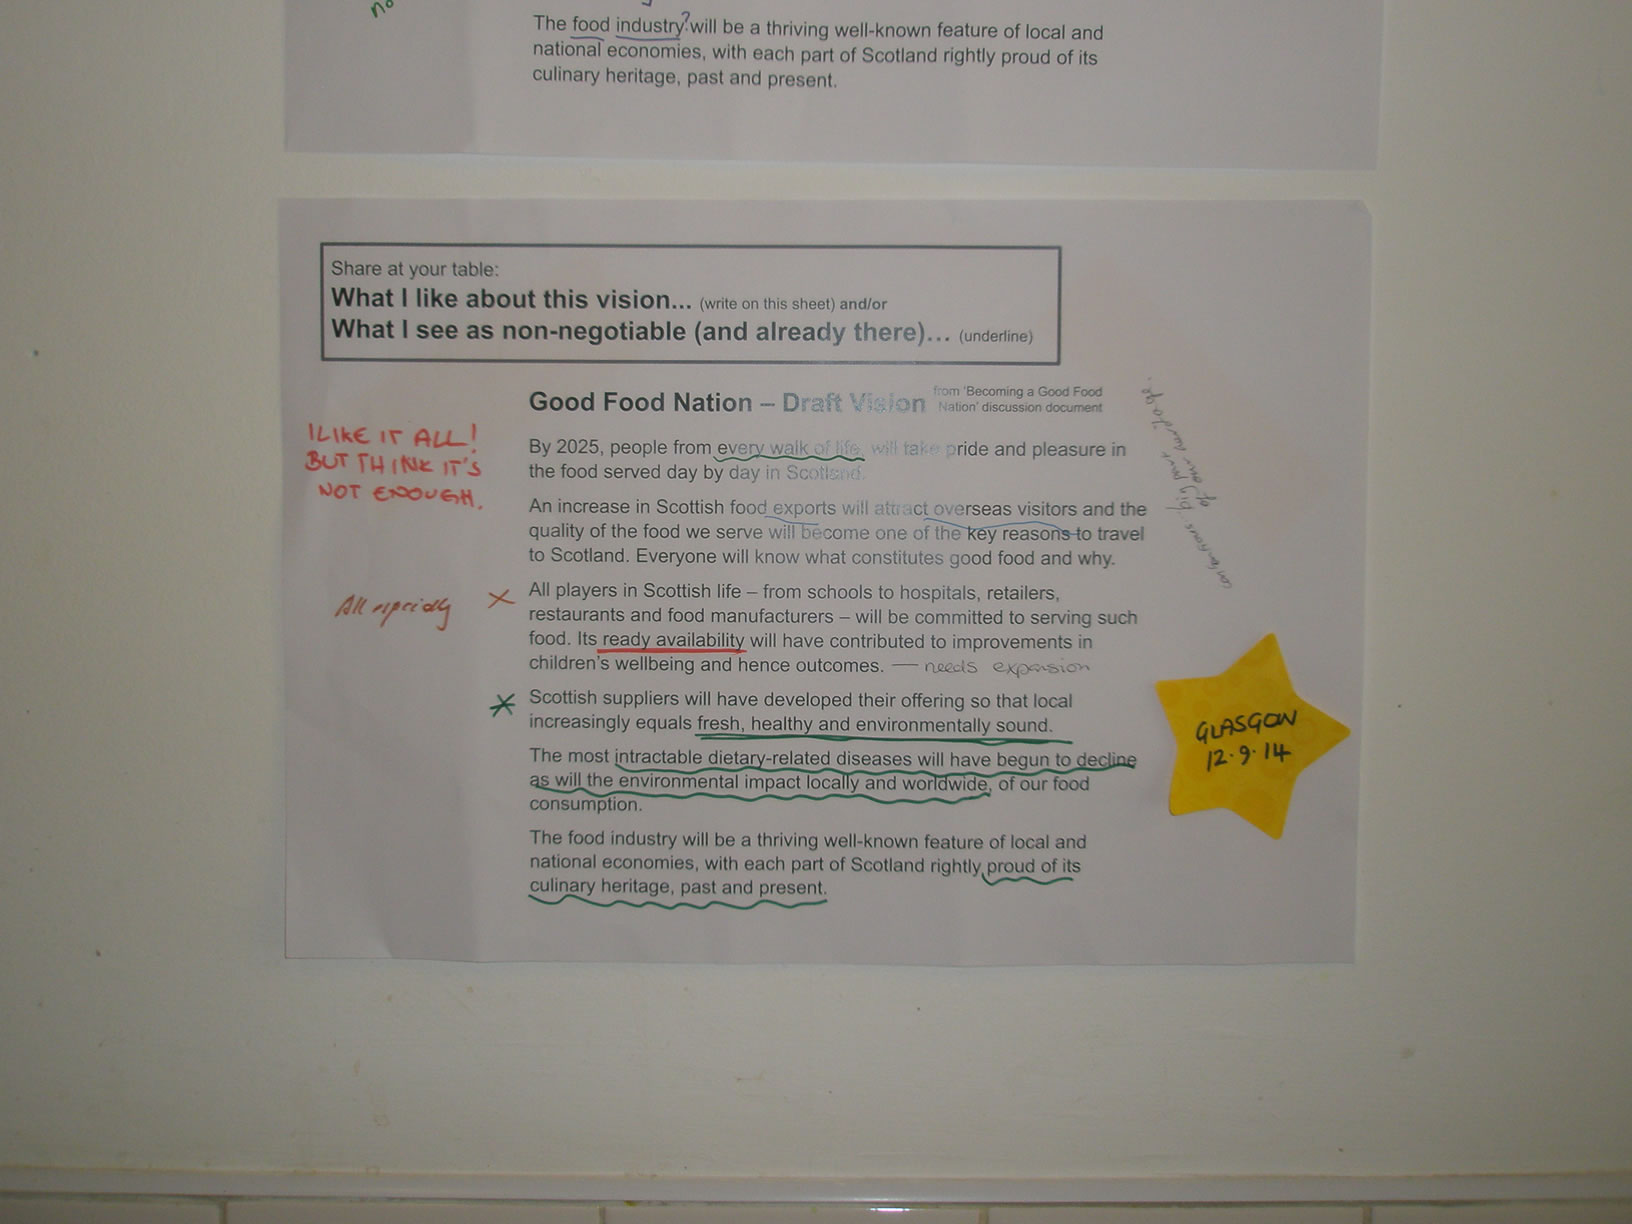 no
The food industry? will be a thriving well-known feature of local and
national economies, with each part of Scotland rightly proud of its
culinary heritage, past and present.
Share at your table:
What I like about this vision... (write on this sheet) and/or
What I see as non-negotiable (and already there)... (underline)
Good Food Nation – Draft Vision
from 'Becoming a Good Food
Nation' discussion document
I LIKE IT ALL!
BUT THINK IT'S
NOT ENOUGH.
By 2025, people from every walk of life, will take pride and pleasure in
the food served day by day in Scotland.
An increase in Scottish food exports will attract overseas visitors and the
quality of the food we serve will become one of the key reasons to travel
to Scotland. Everyone will know what constitutes good food and why.
contentious: big part
of our
All especially
All players in Scottish life – from schools to hospitals, retailers,
restaurants and food manufacturers – will be committed to serving such
food. Its ready availability will have contributed to improvements in
children's wellbeing and hence outcomes. — needs expansion
Scottish suppliers will have developed their offering so that local
increasingly equals fresh, healthy and environmentally sound.
The most intractable dietary-related diseases will have begun to decline
as will the environmental impact locally and worldwide, of our food
consumption.
The food industry will be a thriving well-known feature of local and
national economies, with each part of Scotland rightly proud of its
culinary heritage, past and present.
GLASGOW
12.9.14